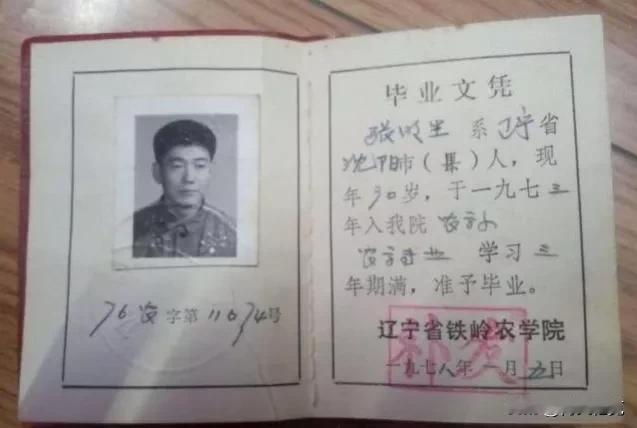 76农字第110674号
毕业文凭
张明生 系 辽宁省
沈阳市(县)人,现
年30岁,于一九七三
年入我院农
农 专业 学习三
年期满,准予毕业。
辽宁省铁岭农学院
一九七八年一月五日
补发